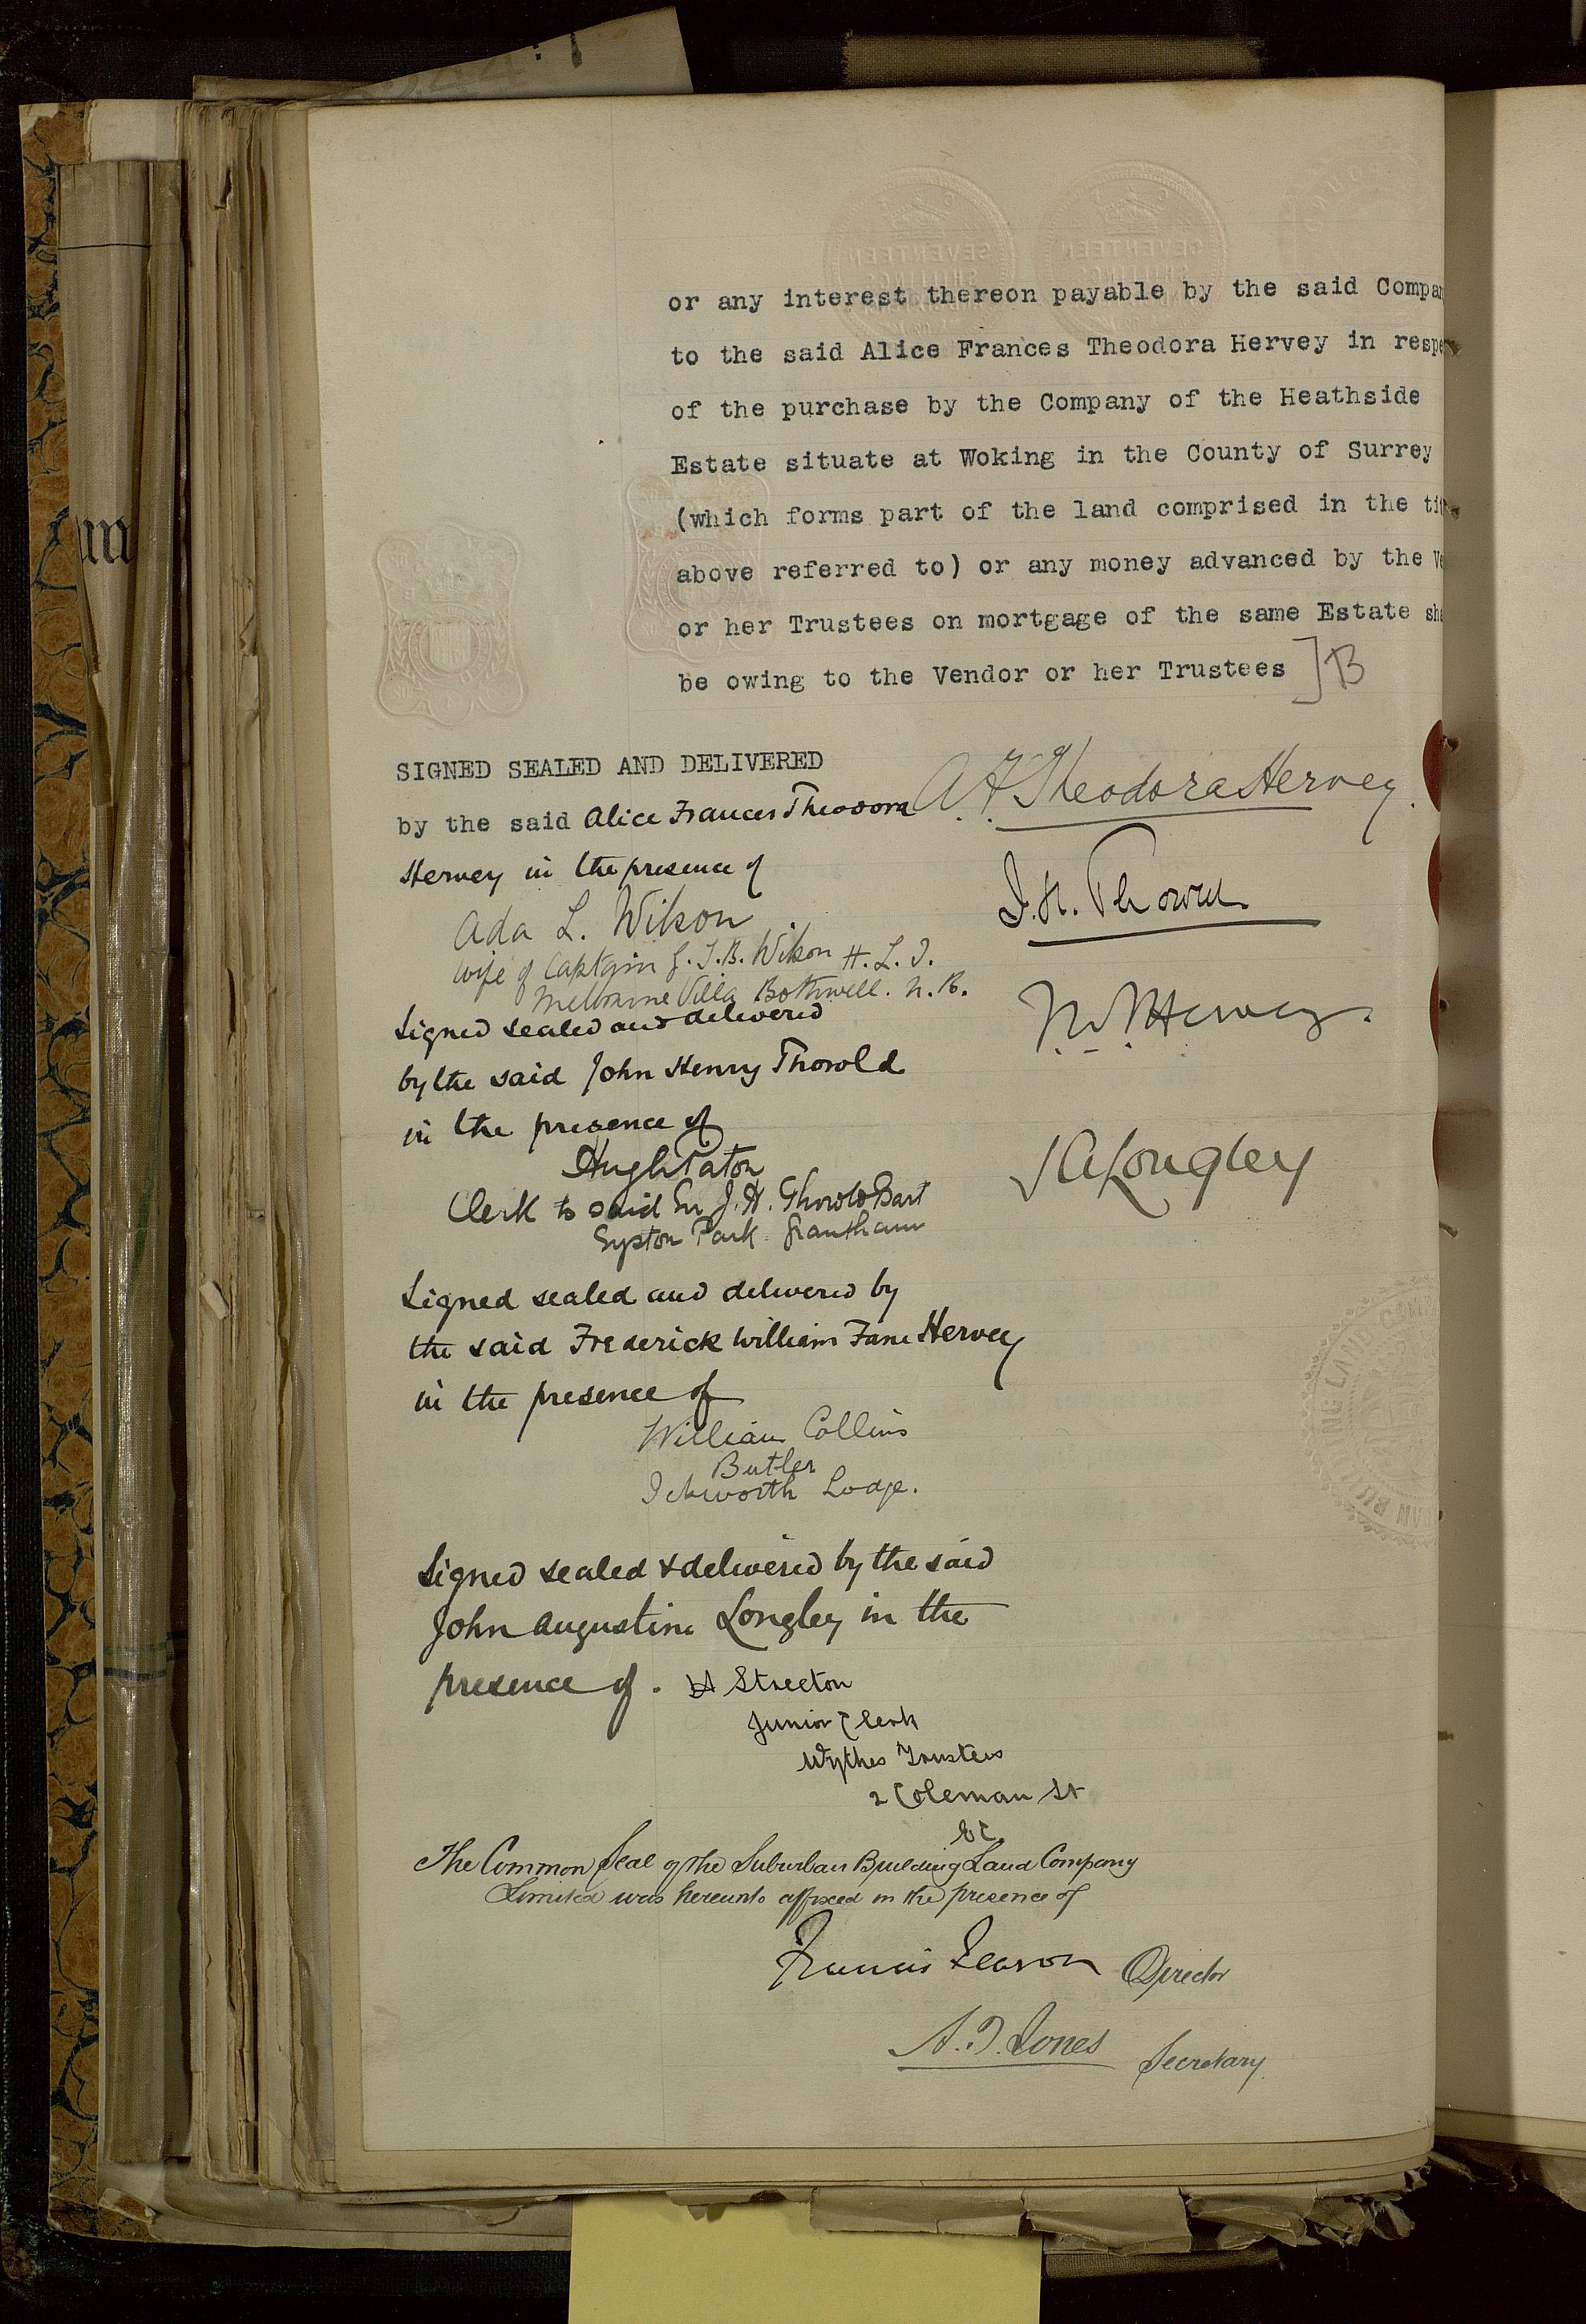 or any interest thereon payable by the said Compan
to the said Alice Frances Theodora Hervey in respe
of the purchase by the Company of the Heathside
Estate situate at Woking in the County of Surrey
(which forms part of the land comprised in the tit
above referred to) or any money advanced by the Ve
or her Trustees on mortgage of the same Estate sha
be owing to the Vendor or her Trustees ] B
SIGNED SEALED AND DELIVERED
by the said Alice Frances Theodora
Hervey in the presence of
A. F. Theodora Hervey.
Ada L. Wilson
wife of Captain J. J. B. Wilson H. L. I.
Melbourne Villa Bothwell. N. B.
J. H. Thorold
Signed sealed and delivered
by the said John Henry Thorold
in the presence of
Hugh Paton
Clerk to said Sir J. H. Thorold Bart
Syston Park Grantham
Hervey.
J A Longley
Signed sealed and delivered by
the said Frederick William Fane Hervey
in the presence of
William Collins
Butler
Ickworth Lodge.
Signed sealed & delivered by the said
John Augustine Longley in the
presence of. H Streeton
Junior Clerk
Wythes Trustees
2 Coleman St
EC
The Common Seal of the Suburban Building Land Company
Limited was hereunto affixed in the presence of
Francis Leason Director
A. J. Jones Secretary.
SEVENTEEN
SHILLINGS
SEVENTEEN
SHILLINGS